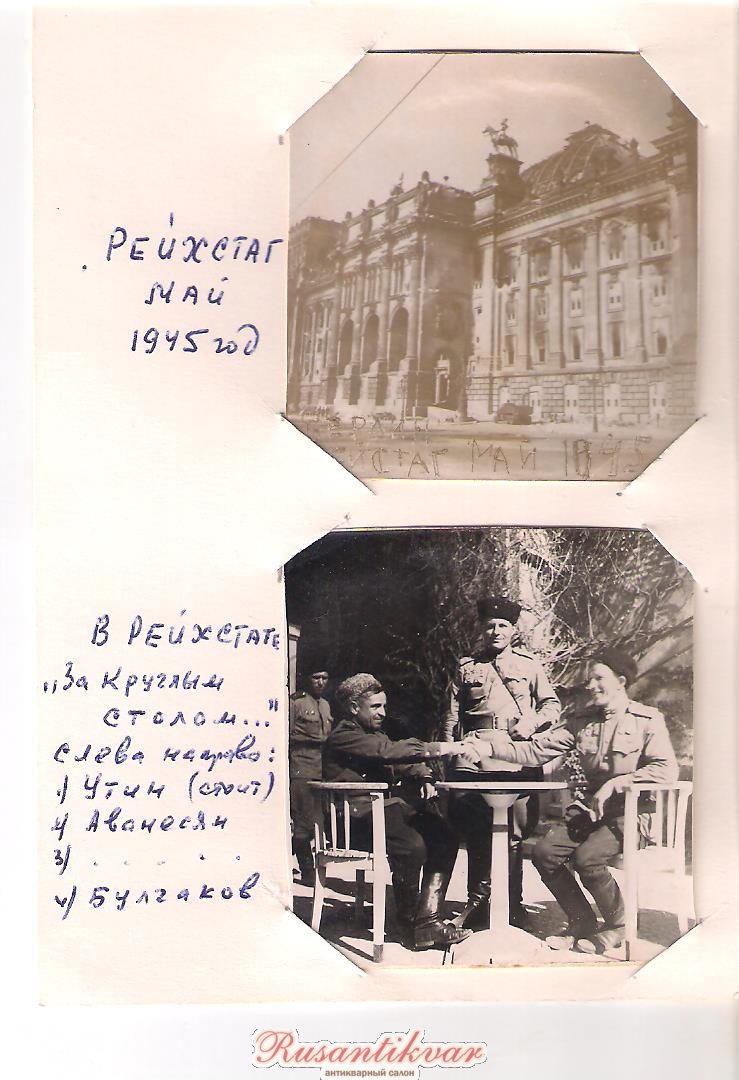 РЕЙХСТАГ
МАЙ
1945 год
БЕРЛИН
РЕЙХСТАГ МАЙ 1945
В РЕЙХСТАГЕ
„За Круглым
столом..."
слева направо:
1) Утин (стоит)
2) Аванесян
3) . . . . .
4) Булгаков
Rusantikvar
антикварный салон